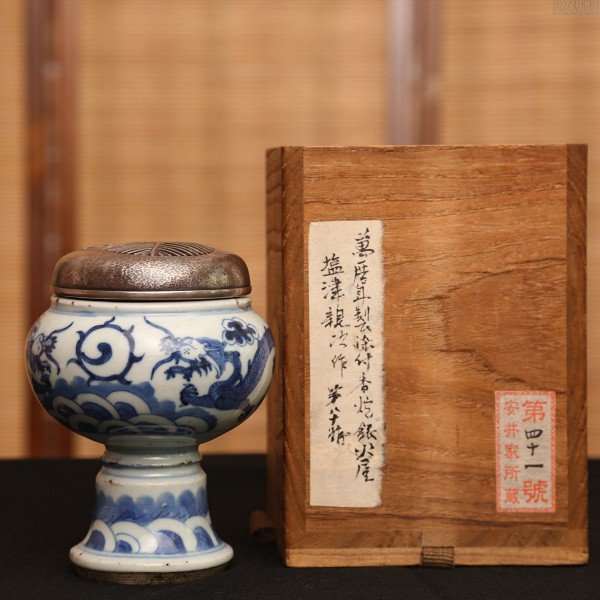 萬暦年製染付香炉銀火屋
塩津親次作
第八十號
第四十一號
安井家所蔵